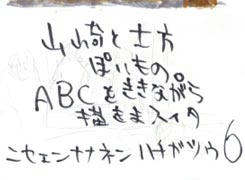 山崎と土方
ぽいもの。
ABCをききながら
描きまスイタ
ニセェンナナネンハチガツゥ6